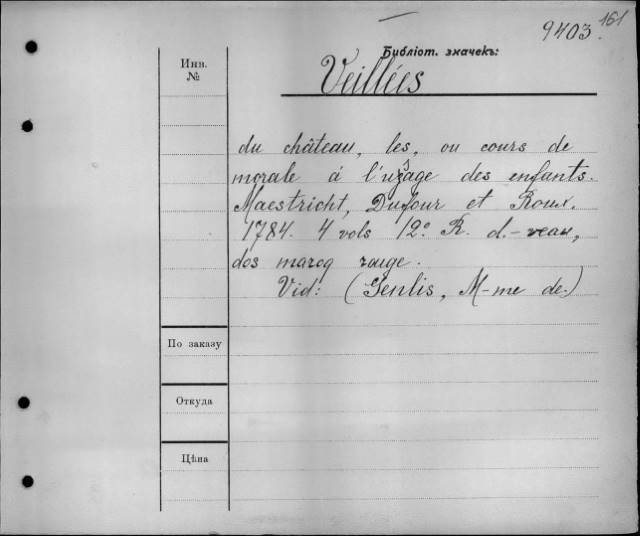 161
9403.
Библіот. значекъ:
Инв.
№
Veillées
du château, les, ou cours de
morale á l'usage des enfants.
Maestricht, Dufour et Roux.
1784. 4 vols 12º R. d.-veau,
dos maroq rouge.
Vid: (Genlis, M-me de.)
По заказу
Откуда
Цѣна